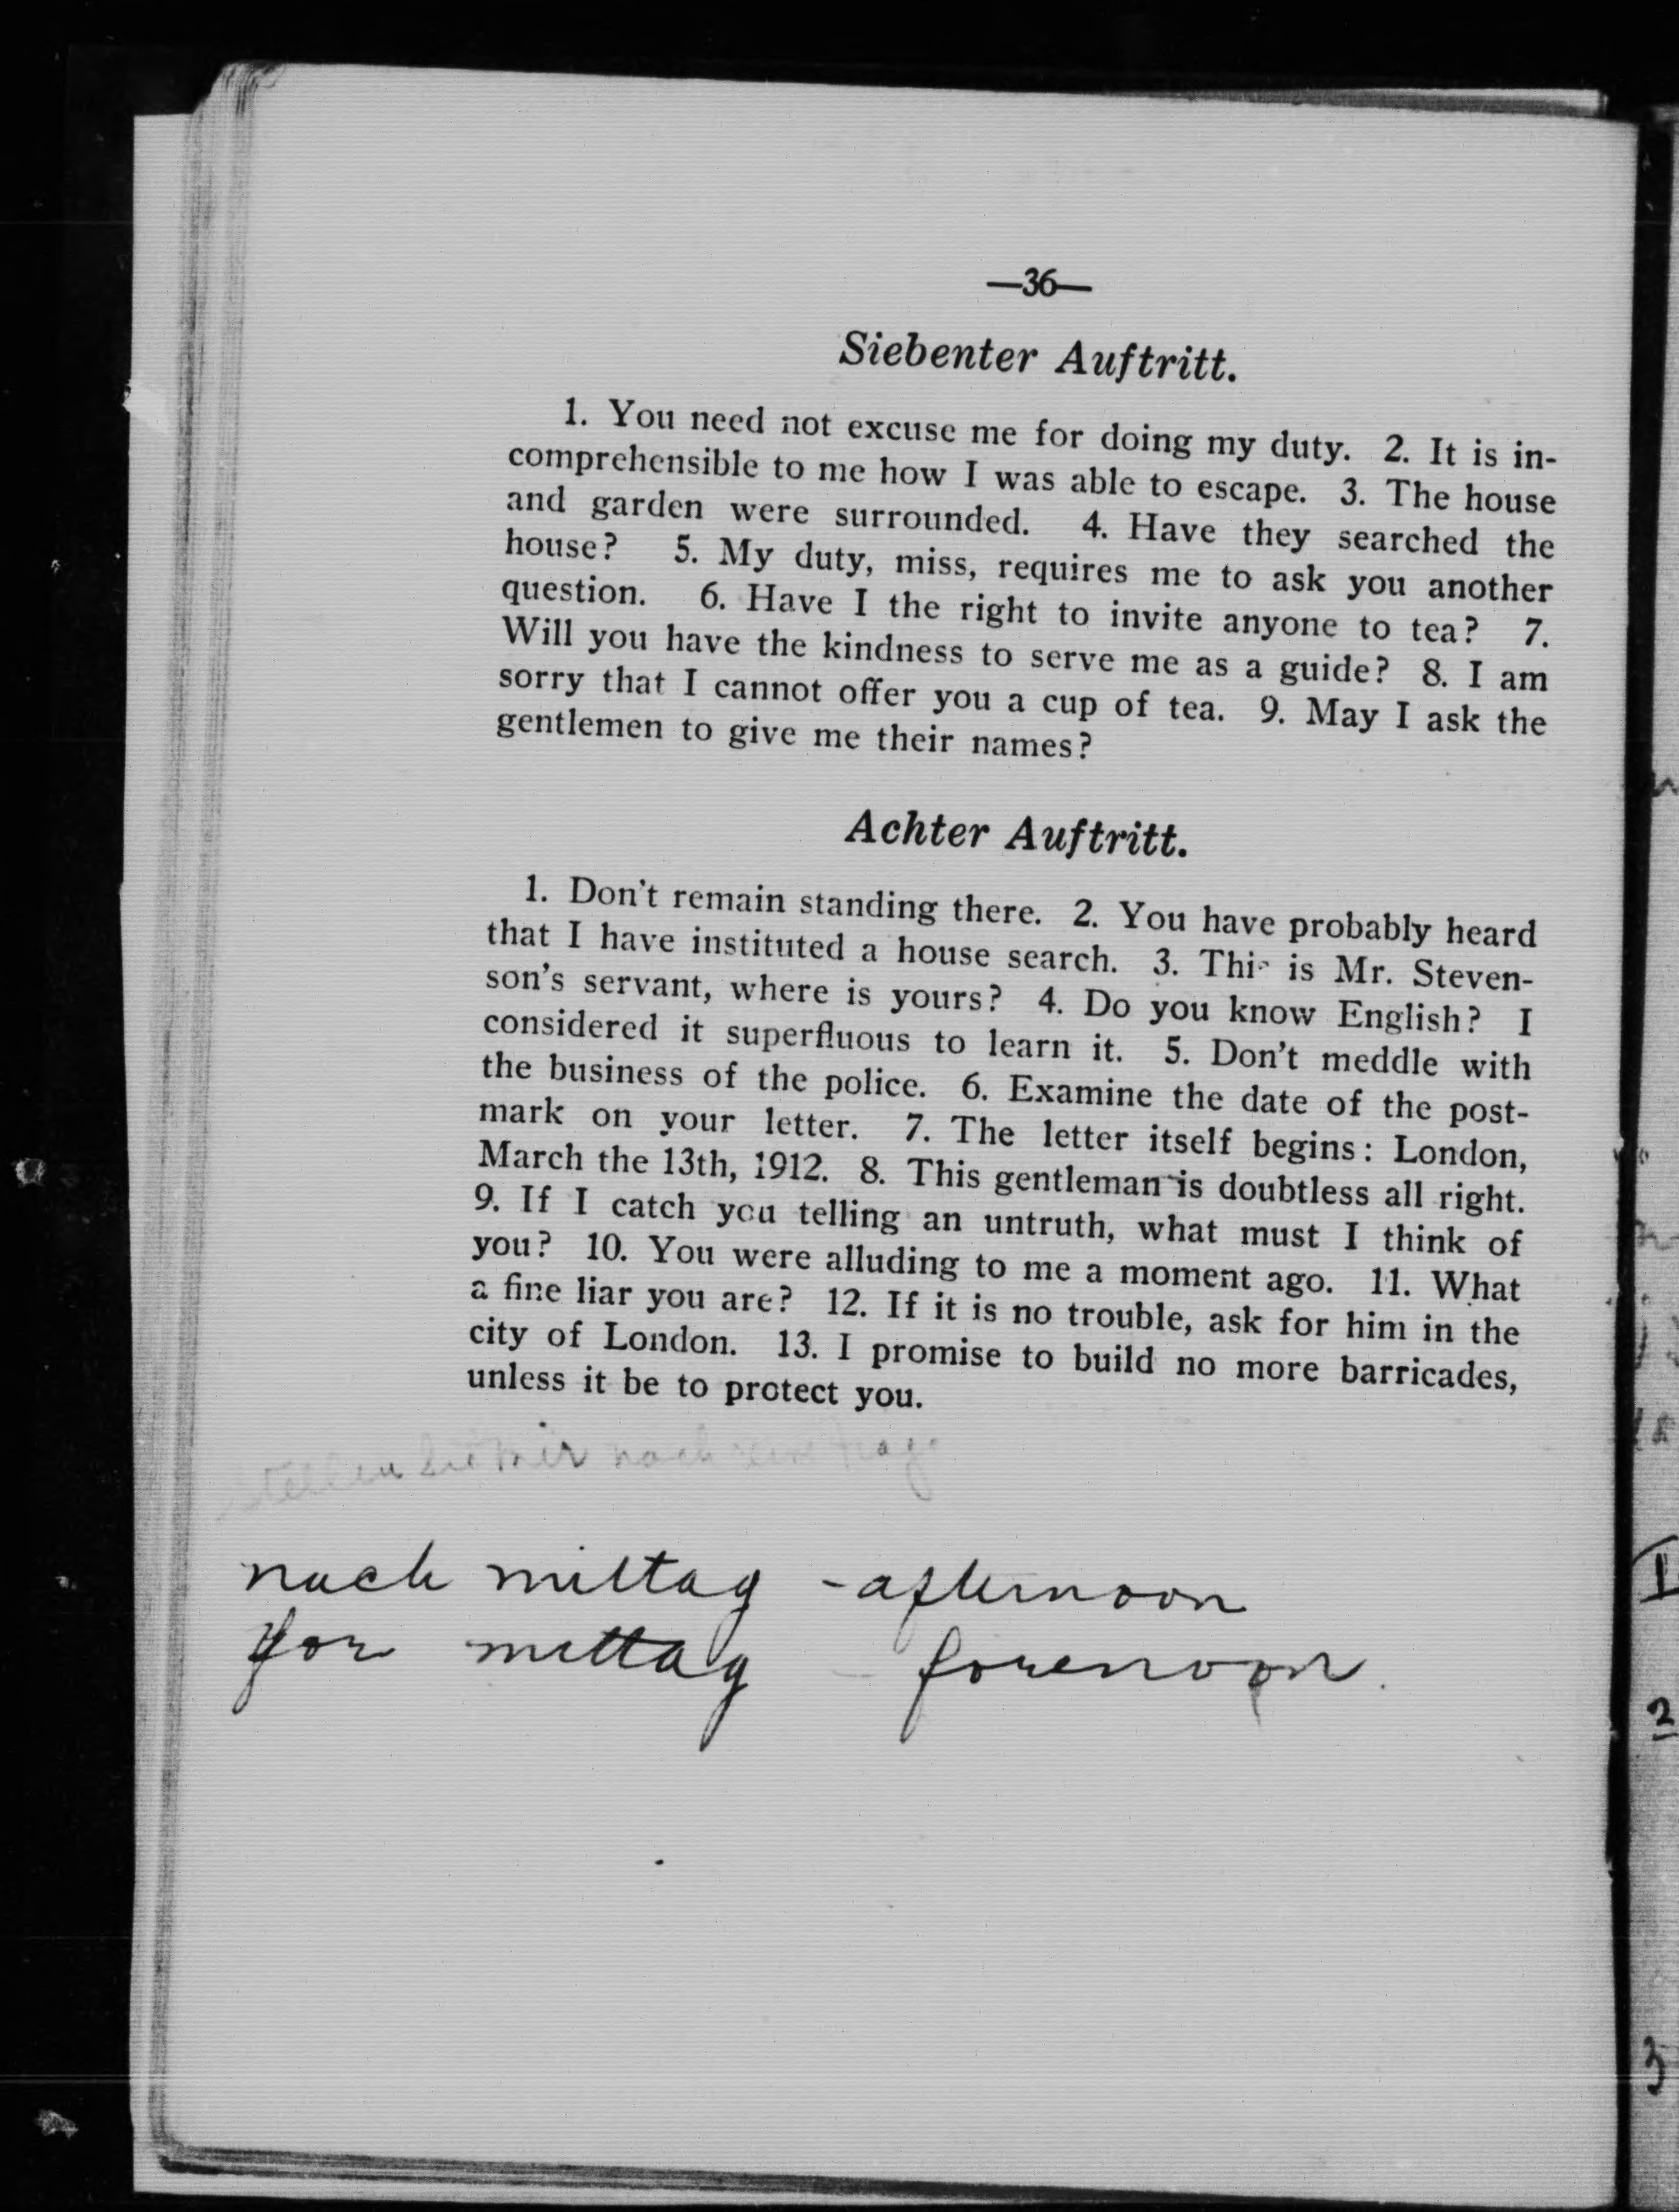 —36—
Siebenter Auftritt.
1. You need not excuse me for doing my duty. 2. It is in-
comprehensible to me how I was able to escape. 3. The house
and garden were surrounded. 4. Have they searched the
house? 5. My duty, miss, requires me to ask you another
question. 6. Have I the right to invite anyone to tea? 7.
Will you have the kindness to serve me as a guide? 8. I am
sorry that I cannot offer you a cup of tea. 9. May I ask the
gentlemen to give me their names?
Achter Auftritt.
1. Don't remain standing there. 2. You have probably heard
that I have instituted a house search. 3. This is Mr. Steven-
son's servant, where is yours? 4. Do you know English? I
considered it superfluous to learn it. 5. Don't meddle with
the business of the police. 6. Examine the date of the post-
mark on your letter. 7. The letter itself begins: London,
March the 13th, 1912. 8. This gentleman is doubtless all right.
9. If I catch you telling an untruth, what must I think of
you? 10. You were alluding to me a moment ago. 11. What
a fine liar you are? 12. If it is no trouble, ask for him in the
city of London. 13. I promise to build no more barricades,
unless it be to protect you.
stellen Sie mir noch
nach mittag - afternoon
for mittag - forenoon.
1
2
3